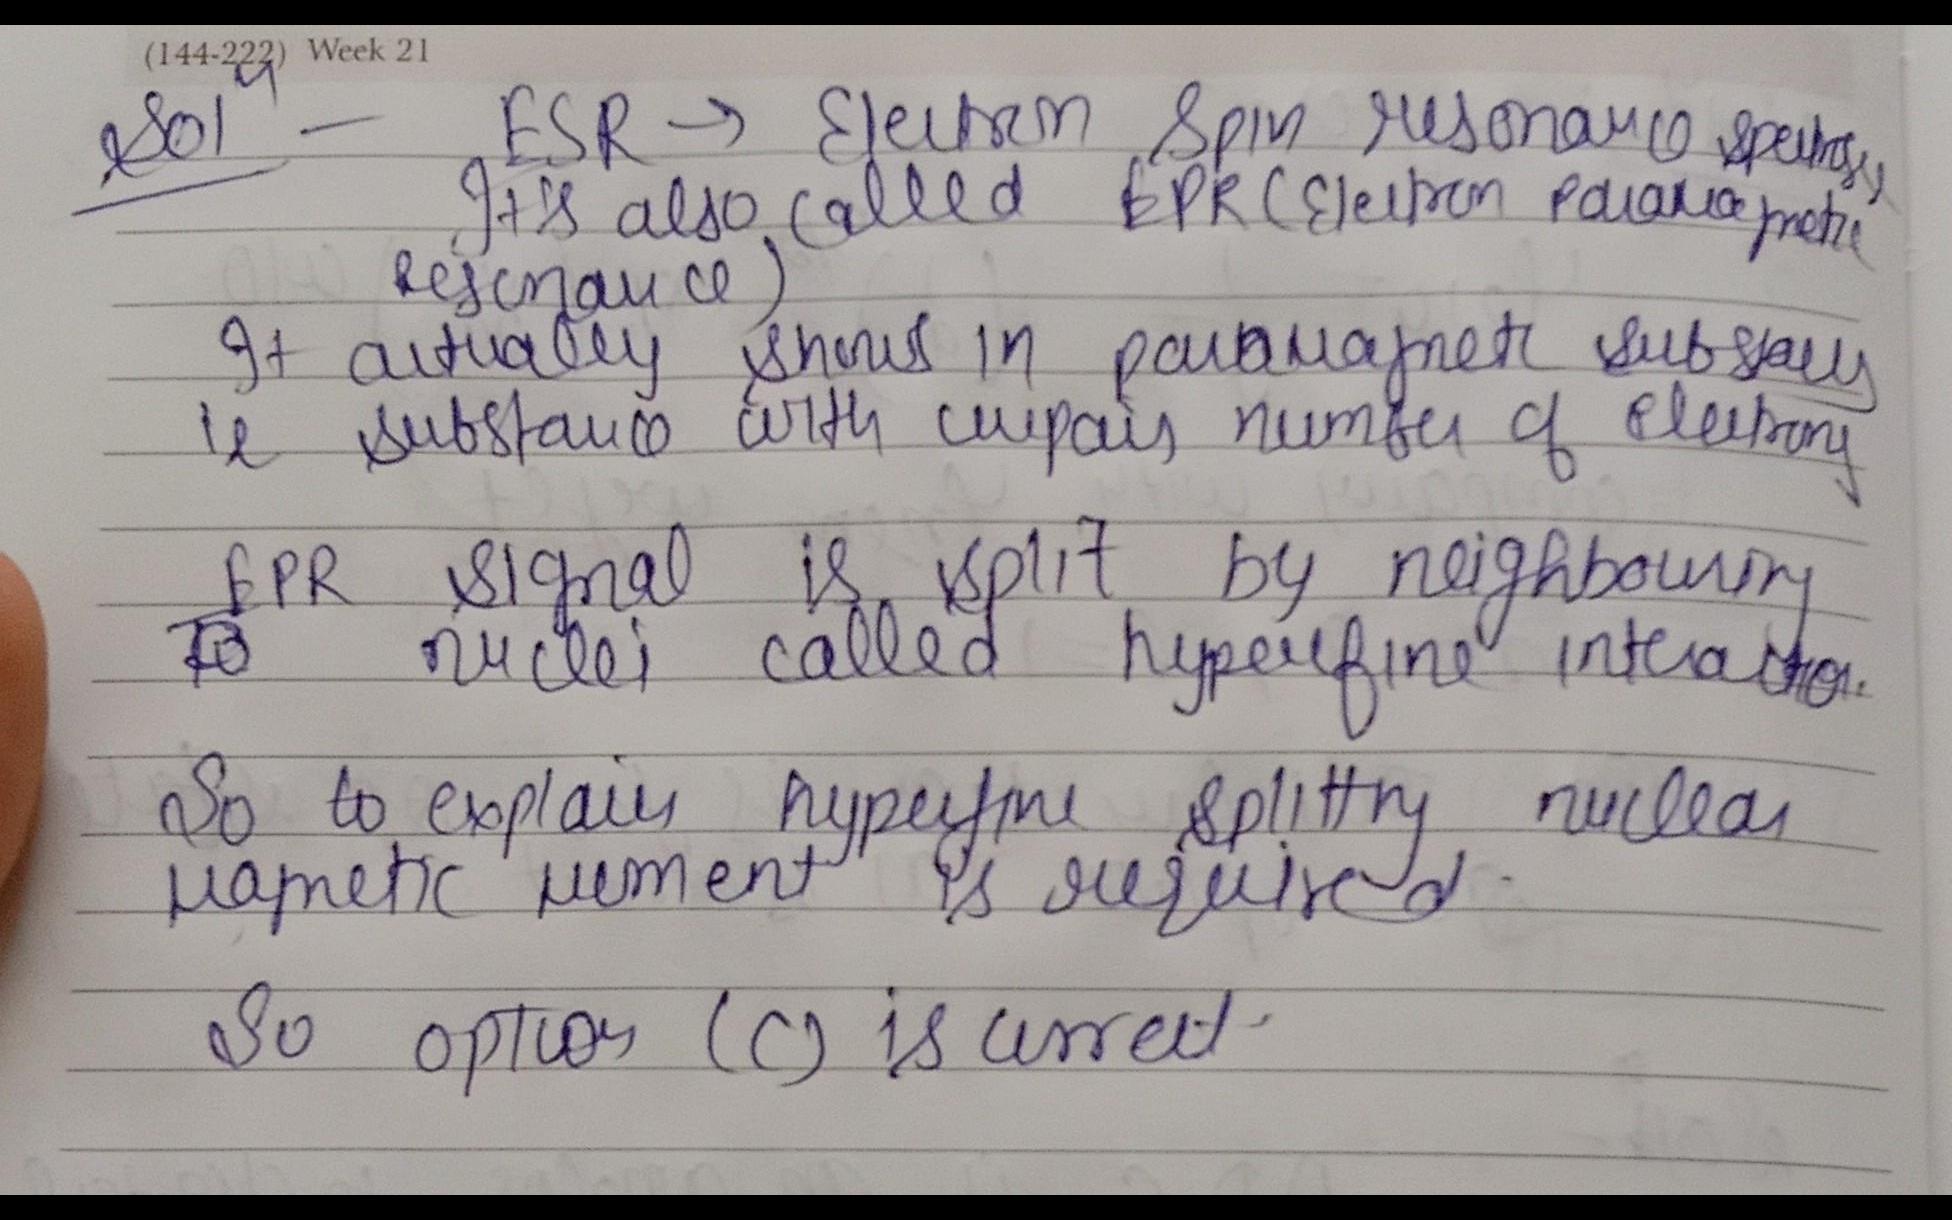 (144-222) Week 21
Solⁿ — ESR → Electron Spin resonance
It's also called EPR (Electron paramagnetic
resonance)
It actually shows in paramagnetic
ie substance with unpair number of electrons
EPR signal is split by neighbouring
nuclei called hyperfine interaction.
So to explain hyperfine splitting nuclear
magnetic moment is required.
So option (C) is correct.